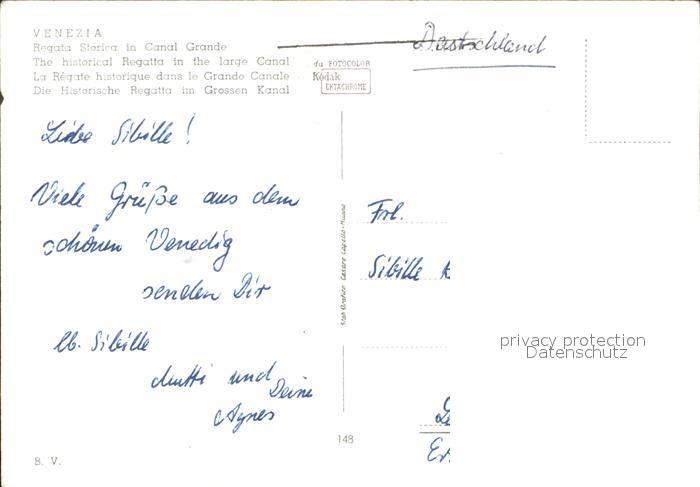 VENEZIA
Regata Storica in Canal Grande
The historical Regatta in the large Canal
La Régate historique dans le Grande Canale
Die Historische Regatta im Grossen Kanal
da FOTOCOLOR
Kodak
EKTACHROME
Deutschland
Liebe Sibille!
Viele Grüße aus dem
schönen Venedig
senden Dir
lb. Sibille
Mutti und Deine
Agnes
Stab. Grafico Cesare Capello - Milano
Frl.
Sibille
privacy protection
Datenschutz
148
B. V.